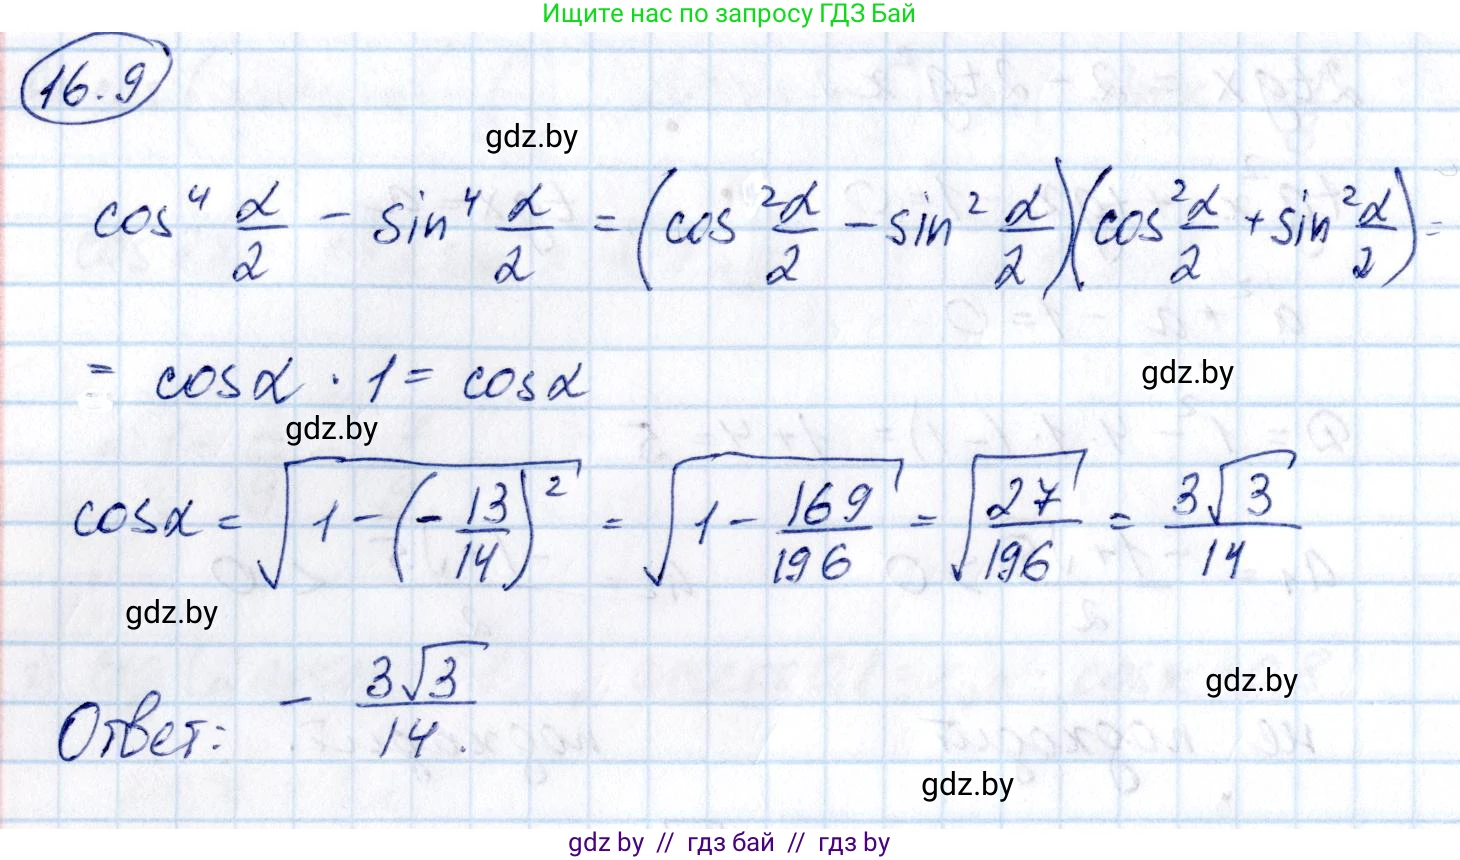 Ищите нас по запросу ГДЗ Бай
16.9
gdz.by
cos⁴ α/2 - sin⁴ α/2 = (cos² α/2 - sin² α/2)(cos² α/2 + sin² α/2) =
= cosα · 1 = cosα
gdz.by
gdz.by
cosα = √(1 - (-13/14)²) = √(1 - 169/196) = √(27/196) = 3√3/14
gdz.by
Ответ: - 3√3/14.
gdz.by
gdz.by
gdz by // гдз бай // гдз by